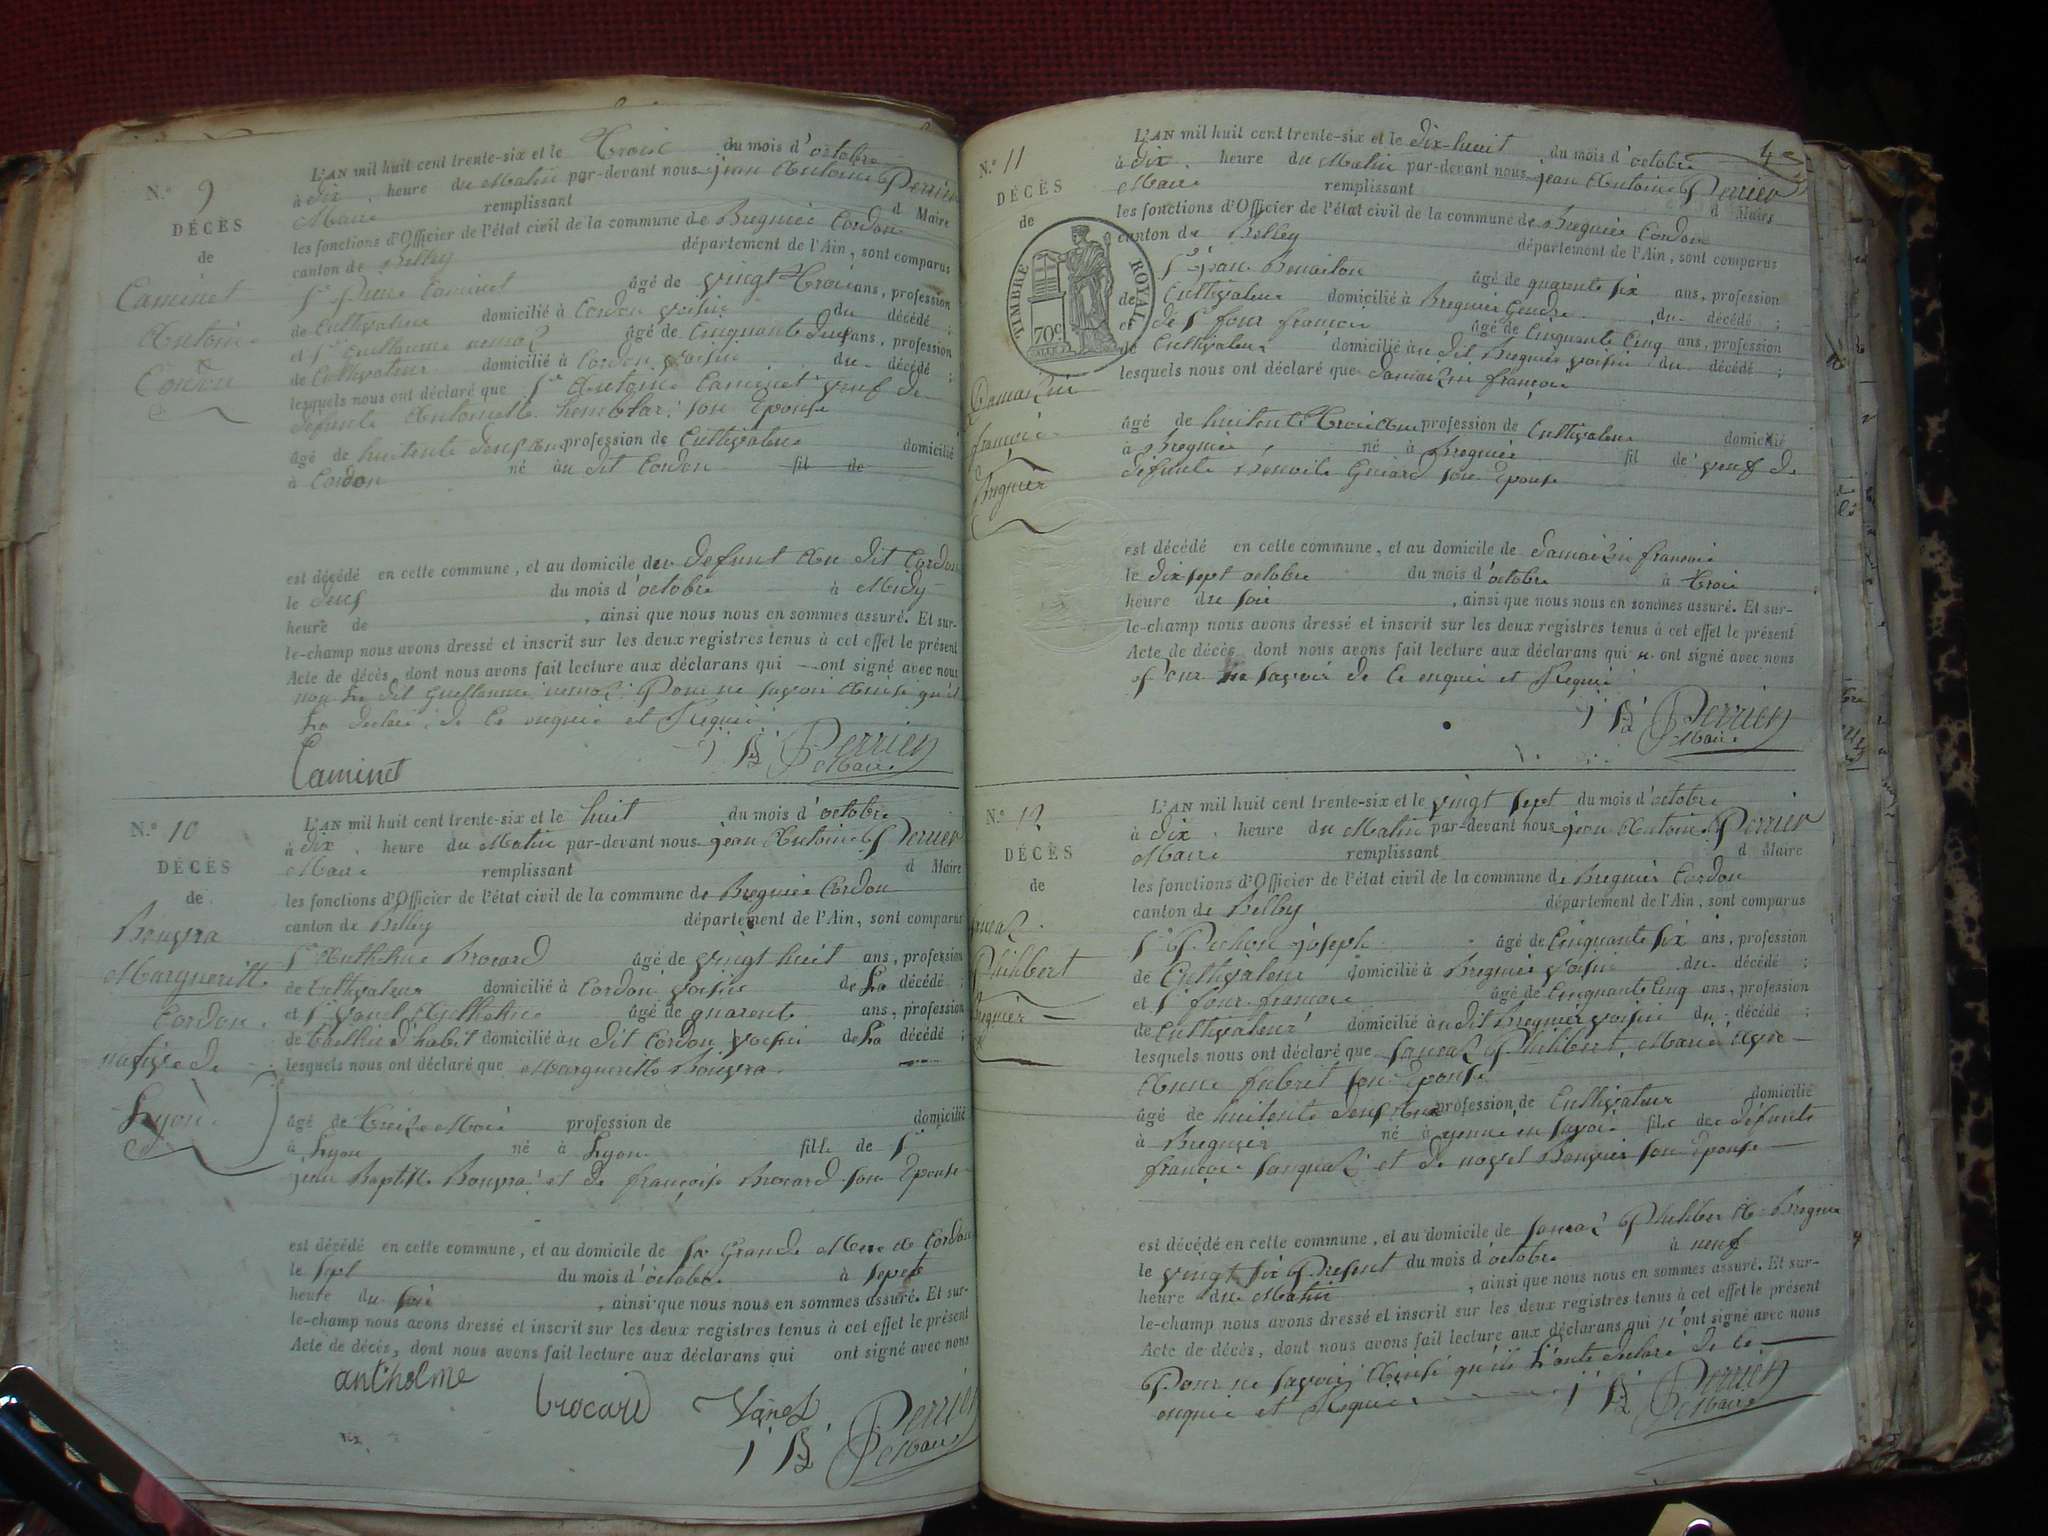 N.º 9
DÉCÈS
de
Caminet
Antoine
Cordon
L'AN mil huit cent trente-six et le Trois du mois d'octobre
à dix heure du Matin par-devant nous jean Antoine Perrier
Maire remplissant d Maire
les fonctions d'Officier de l'état civil de la commune de Bregnier Cordon
canton de Belley département de l'Ain, sont comparus
Sr Pierre Caminet âgé de vingt Trois ans, profession
de Cultivateur domicilié à Cordon voisin du décédé ;
et Sr Guillaume âgé de Cinquante deux ans, profession
de Cultivateur domicilié à Cordon voisin du décédé ;
lesquels nous ont déclaré que Sr Antoine Caminet veuf de
défunte Antoinette son Epouse
âgé de huitente deux ans profession de Cultivateur domicilié
à Cordon né au dit Cordon fil de
est décédé en cette commune, et au domicile du defunt Au dit Cordon
le deux du mois d'octobre à Midy
heure de , ainsi que nous nous en sommes assuré. Et sur-
le-champ nous avons dressé et inscrit sur les deux registres tenus à cet effet le présent
Acte de décès, dont nous avons fait lecture aux déclarans qui ont signé avec nous
non Le dit Guillaume Pour ne savoir
La déclaré de ce enquis et Requis
Caminet J B Perrier
Maire
N.º 10
DÉCÈS
de
Bouvra
Margueritte
Cordon
native de
Lyon
L'AN mil huit cent trente-six et le huit du mois d'octobre
à dix heure du Matin par-devant nous jean Antoine Perrier
Maire remplissant d Maire
les fonctions d'Officier de l'état civil de la commune de Bregnier Cordon
canton de Belley département de l'Ain, sont comparus
Sr Anthelme Brocard âgé de vingt huit ans, profession
de Cultivateur domicilié à Cordon voisin de La décédé ;
et Sr Anthelme âgé de quarente ans, profession
de Taillieur d'habit domicilié au dit Cordon voisin de La décédé ;
lesquels nous ont déclaré que Margueritte Bouvra
âgé de Treize Mois profession de domicilié
à Lyon né à Lyon fille de Sr
jean Baptiste Bouvra et de françoise Brocard son Epouse
est décédé en cette commune, et au domicile de sa Grande Mere de Cordon
le sept du mois d'octobre à sept
heure du soir , ainsi que nous nous en sommes assuré. Et sur-
le-champ nous avons dressé et inscrit sur les deux registres tenus à cet effet le présent
Acte de décès, dont nous avons fait lecture aux déclarans qui ont signé avec nous
anthelme brocard
J B Perrier
Maire
N.º 11
DÉCÈS
de
TIMBRE ROYAL
70c
Damaizin
françois
Bregnier
L'AN mil huit cent trente-six et le dix-huit du mois d'octobre
à dix heure du Matin par-devant nous jean Antoine Perrier
Maire remplissant d Maire
les fonctions d'Officier de l'état civil de la commune de Bregnier Cordon
canton de Belley département de l'Ain, sont comparus
Sr jean âgé de quarante six ans, profession
de Cultivateur domicilié à Bregnier Gendre du décédé ;
et de Sr four françois âgé de Cinquante Cinq ans, profession
de Cultivateur domicilié au dit Bregnier voisin du décédé ;
lesquels nous ont déclaré que Damaizin françois
âgé de huitente Trois ans profession de Cultivateur domicilié
à Bregnier né à Bregnier fil de veuf de
defunte son Epouse
est décédé en cette commune, et au domicile de Damaizin françois
le dix sept octobre du mois d'octobre à Trois
heure du soir , ainsi que nous nous en sommes assuré. Et sur-
le-champ nous avons dressé et inscrit sur les deux registres tenus à cet effet le présent
Acte de décès, dont nous avons fait lecture aux déclarans qui n. ont signé avec nous
Pour ne savoir de ce enquis et Requis
J B Perrier
Maire
N.º 12
DÉCÈS
de
Philibert
Bregnier
L'AN mil huit cent trente-six et le vingt sept du mois d'octobre
à dix heure du Matin par-devant nous jean Antoine Perrier
Maire remplissant d Maire
les fonctions d'Officier de l'état civil de la commune de Bregnier Cordon
canton de Belley département de l'Ain, sont comparus
Sr Pichon joseph âgé de Cinquante six ans, profession
de Cultivateur domicilié à Bregnier voisin du décédé ;
et Sr four françois âgé de Cinquante Cinq ans, profession
de Cultivateur domicilié au dit Bregnier voisin du décédé ;
lesquels nous ont déclaré que Philibert, Marié avec
Anne son Epouse
âgé de huitente deux ans profession de Cultivateur domicilié
à Bregnier né à yenne en savoie fils de défunte
françois et de son Epouse
est décédé en cette commune, et au domicile de Philibert A Bregnier
le vingt six Présent du mois d'octobre à neuf
heure du Matin , ainsi que nous nous en sommes assuré. Et sur-
le-champ nous avons dressé et inscrit sur les deux registres tenus à cet effet le présent
Acte de décès, dont nous avons fait lecture aux déclarans qui n'ont signé avec nous
Pour ne savoir qu'ils L'onte declaré de ce
enquis et Requis J B Perrier
Maire